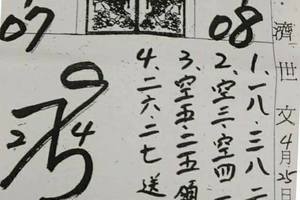 07
08
濟世文
4月25日
1.一八.三八.二
2.空三.空四.二
3.空五.二五領
4.二六.二七送
2 4